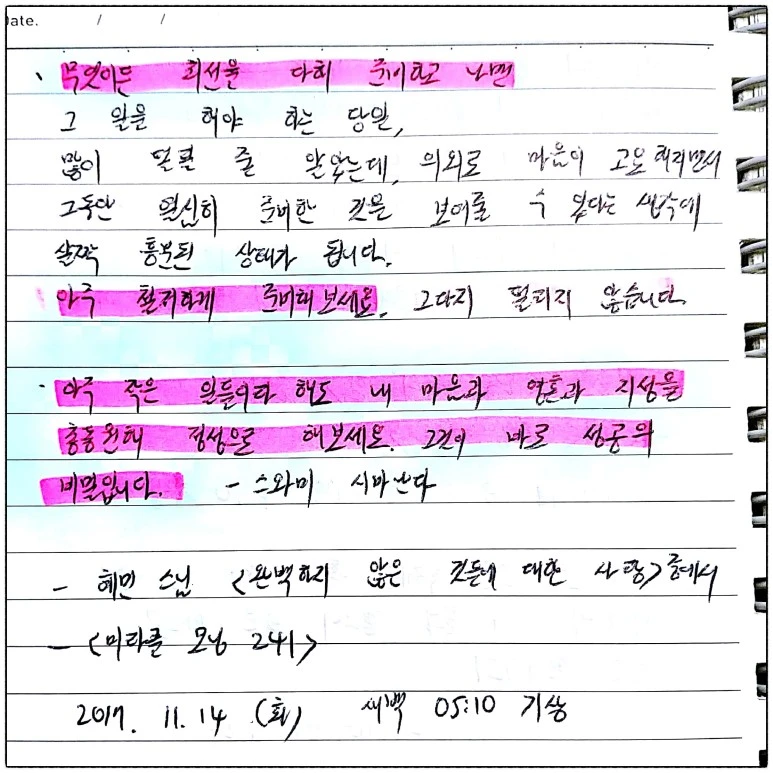 Date. / /
무엇이든 최선을 다해 준비하고 나면
그 일을 해야 하는 당일,
많이 떨릴 줄 알았는데, 의외로 마음이 고요해지면서
그동안 열심히 준비한 것을 보여줄 수 있다는 생각에
살짝 흥분된 상태가 됩니다.
아주 철저하게 준비해보세요. 그다지 떨리지 않습니다.
아주 작은 일들이라 해도 내 마음과 영혼과 지성을
총동원해 정성으로 해보세요. 그것이 바로 성공의
비밀입니다. - 스와미 시바난다
- 혜민 스님 <완벽하지 않은 것들에 대한 사랑> 중에서
- <미라클 모닝 241>
2017. 11. 14 (화) 새벽 05:10 기상